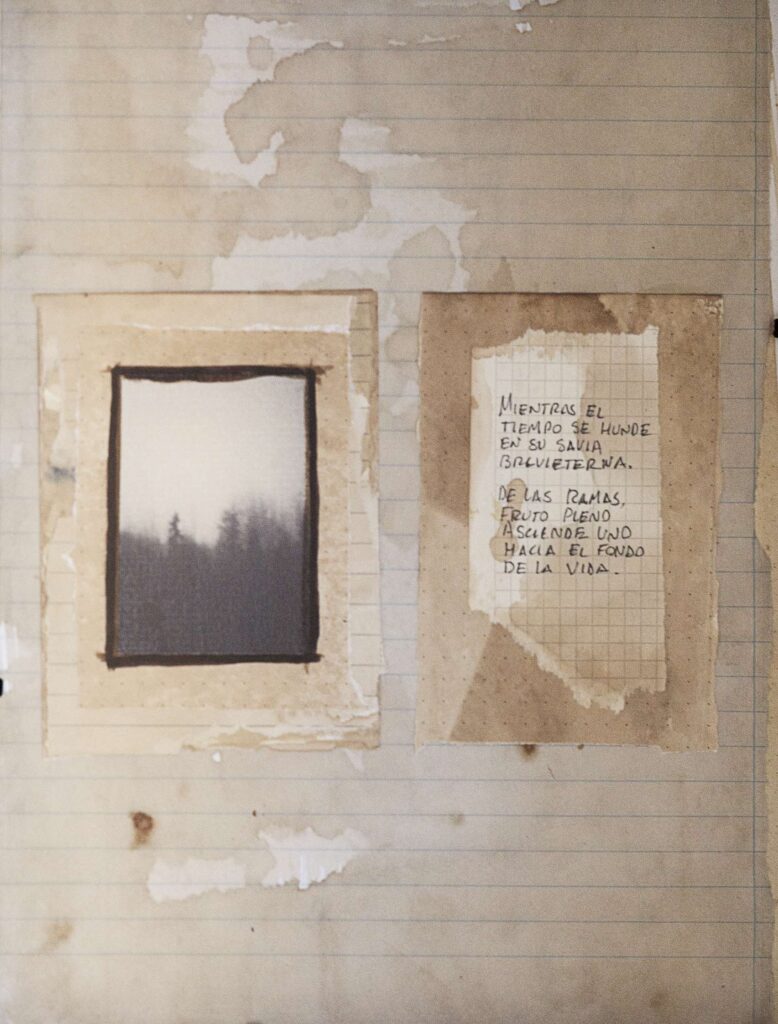 MIENTRAS EL
TIEMPO SE HUNDE
EN SU SAVIA
BREVIETERNA.
DE LAS RAMAS,
FRUTO PLENO
ASCIENDE UNO
HACIA EL FONDO
DE LA VIDA.